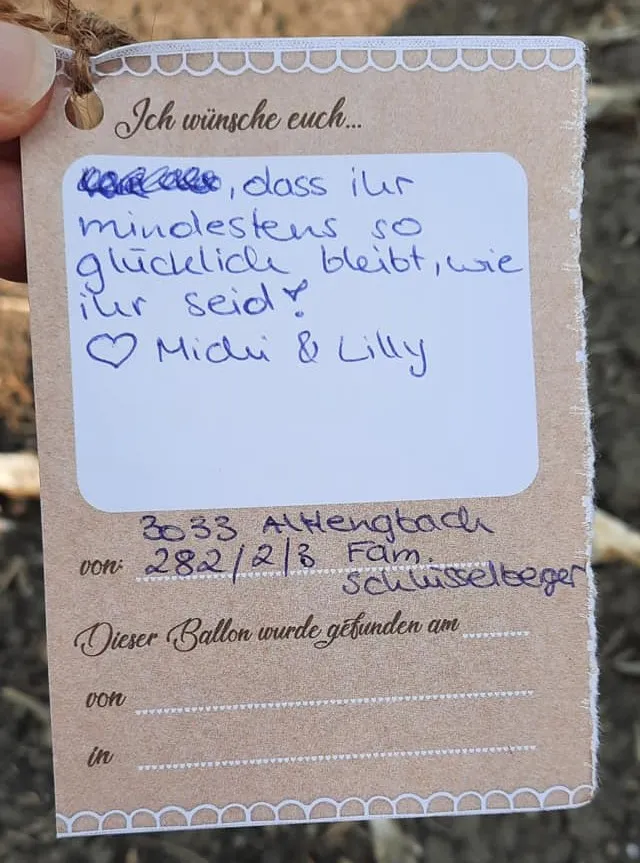 Ich wünsche euch...
, dass ihr
mindestens so
glücklich bleibt, wie
ihr seid!
♡ Michi & Lilly
3033 Altlengbach
von: 282/2/3 Fam.
Schlüsselbeger
Dieser Ballon wurde gefunden am
von
in